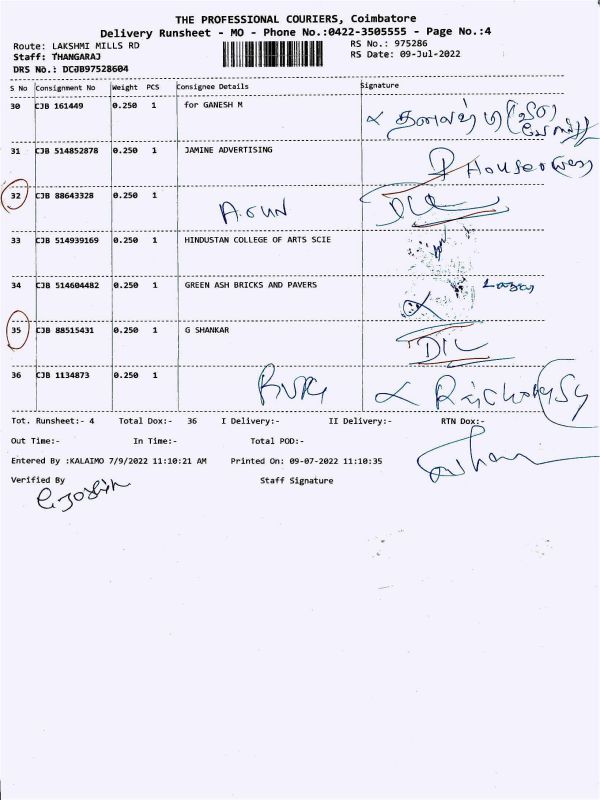 THE PROFESSIONAL COURIERS, Coimbatore
Delivery Runsheet - MO - Phone No.:0422-3505555 - Page No.:4
Route: LAKSHMI MILLS RD RS No.: 975286
Staff: THANGARAJ RS Date: 09-Jul-2022
DRS No.: DCJB97528604
S No Consignment No Weight PCS Consignee Details Signature
30 CJB 161449 0.250 1 for GANESH M
31 CJB 514852878 0.250 1 JAMINE ADVERTISING
32 CJB 88643328 0.250 1 Arun
33 CJB 514939169 0.250 1 HINDUSTAN COLLEGE OF ARTS SCIE
34 CJB 514604482 0.250 1 GREEN ASH BRICKS AND PAVERS
35 CJB 88515431 0.250 1 G SHANKAR DIL
36 CJB 1134873 0.250 1
Tot. Runsheet:- 4 Total Dox:- 36 I Delivery:- II Delivery:- RTN Dox:-
Out Time:- In Time:- Total POD:-
Entered By :KALAIMO 7/9/2022 11:10:21 AM Printed On: 09-07-2022 11:10:35
Verified By Staff Signature